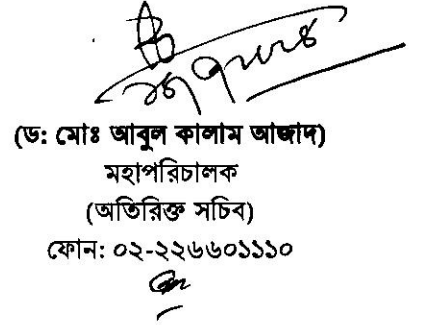 (ড: মোঃ আবুল কালাম আজাদ)
মহাপরিচালক
(অতিরিক্ত সচিব)
ফোন: ০২-২২৬৬০১১১০